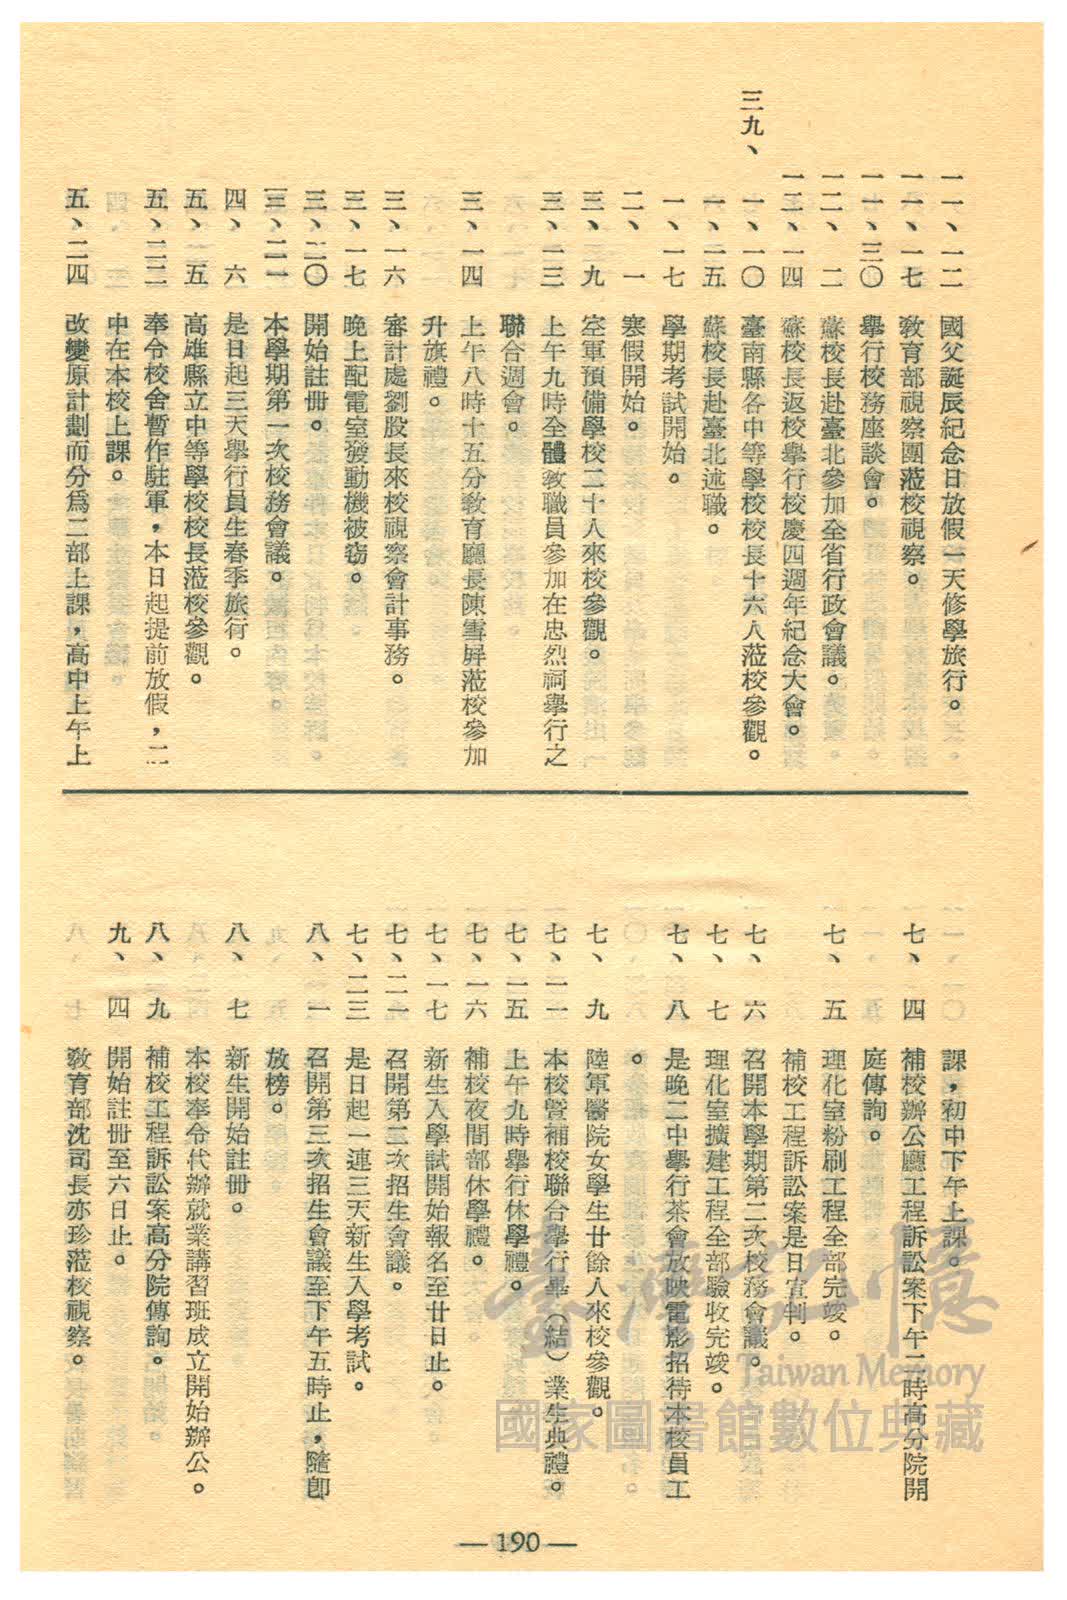 一一、一二　國父誕辰紀念日放假一天修學旅行。
一一、一七　教育部視察團蒞校視察。
一一、三〇　舉行校務座談會。
一二、　二　蘇校長赴臺北參加全省行政會議。
一二、一四　蘇校長返校舉行校慶四週年紀念大會。
三九、　一、一〇　臺南縣各中等學校校長十六人蒞校參觀。
一、一五　蘇校長赴臺北述職。
一、一七　學期考試開始。
二、　一　寒假開始。
三、　九　空軍預備學校二十八來校參觀。
三、一三　上午九時全體教職員參加在忠烈祠舉行之
聯合週會。
三、一四　上午八時十五分教育廳長陳雪屏蒞校參加
升旗禮。
三、一六　審計處劉股長來校視察會計事務。
三、一七　晚上配電室發動機被窃。
三、二〇　開始註冊。
三、二一　本學期第一次校務會議。
四、　六　是日起三天舉行員生春季旅行。
五、　五　高雄縣立中等學校校長蒞校參觀。
五、二二　奉令校舍暫作駐軍，本日起提前放假，二
中在本校上課。
五、二四　改變原計劃而分爲二部上課，高中上午上
課，初中下午上課。
七、　四　補校辦公廳工程訴訟案下午二時高分院開
庭傳詢。
七、　五　理化室粉刷工程全部完竣。
補校工程訴訟案是日宣判。
七、　六　召開本學期第二次校務會議。
七、　七　理化室擴建工程全部驗收完竣。
七、　八　是晚二中舉行茶會放映電影招待本校員工
。
七、　九　陸軍醫院女學生廿餘人來校參觀。
七、一一　本校暨補校聯合舉行畢（結）業生典禮。
七、一五　上午九時舉行休學禮。
七、一六　補校夜間部休學禮。
七、一七　新生入學試開始報名至廿日止。
七、二一　召開第二次招生會議。
七、二三　是日起一連三天新生入學考試。
八、　一　召開第三次招生會議至下午五時止，隨卽
放榜。
八、　七　新生開始註冊。
本校奉令代辦就業講習班成立開始辦公。
八、　九　補校工程訴訟案高分院傳詢。
九、　四　開始註冊至六日止。
教育部沈司長亦珍蒞校視察。
—190—
臺灣記憶
Taiwan Memory
國家圖書館數位典藏